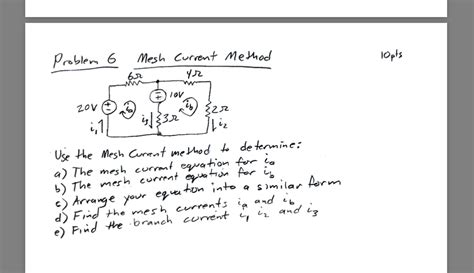 Problem 6 Mesh Current Method 10pts
6Ω 4Ω
20V ia 10V ib 2Ω
i1 i3 3Ω i2
Use the Mesh Current method to determine:
a) The mesh current equation for ia
b) The mesh current equation for ib
c) Arrange your equation into a similar form
d) Find the mesh currents ia and ib
e) Find the branch current i1 i2 and i3